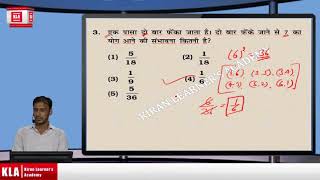 3. एक पासा दो बार फेंका जाता है। दो बार फेंके जाने से 7 का
योग आने की संभावना कितनी है?
(1) 5/18
(2) 1/18
(3) 1/9
(4) 1/6
(5) 5/36
(6)² = 36
6/36 = 1/6
KIRAN LEARNER'S ACADEMY
KLA Kiran Learner's
Academy